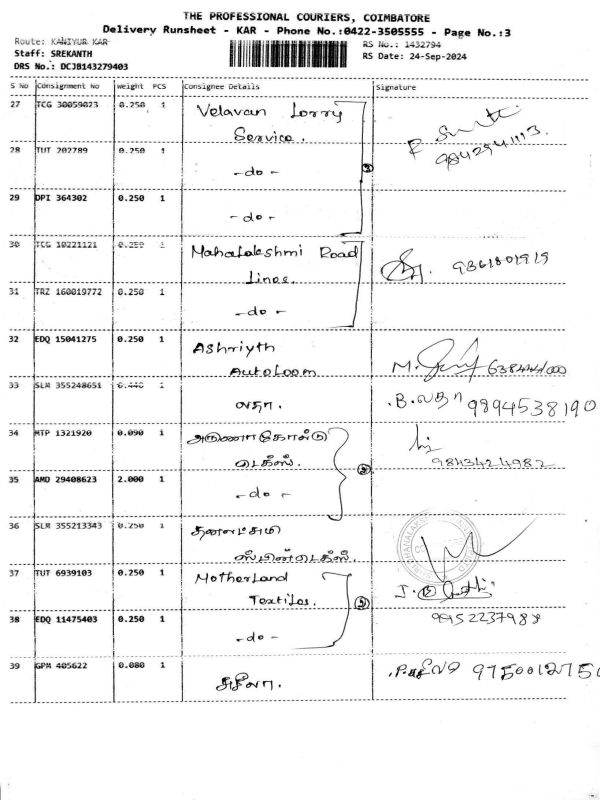 THE PROFESSIONAL COURIERS, COIMBATORE
Delivery Runsheet - KAR - Phone No.:0422-3505555 - Page No.:3
Route: KANIYUR KAR
RS No.: 1432794
Staff: SREKANTH
RS Date: 24-Sep-2024
DRS No.: DCJB143279403
S No Consignment No Weight PCS Consignee Details Signature
27 TCG 30059023 0.250 1 Velavan Lorry
Service.
9842941113.
28 TUT 202789 0.250 1 -do-
29 DPI 364302 0.250 1 -do-
30 TCG 10221121 0.250 1 Mahalakshmi Road
Lines. 9361801919
31 TRZ 160019772 0.250 1 -do-
32 EDQ 15041275 0.250 1 Ashriyth
Autoloom
33 SLM 355248651 0.440 1 லதா. B.லதா 9894538190
34 MTP 1321920 0.090 1 அருணாகோல்டு
டெக்ஸ். 9843424982
35 AMD 29408623 2.000 1 -do-
36 SLM 355213343 0.250 1 தனலட்சுமி
ஸ்பின்டெக்ஸ்.
37 TUT 6939103 0.250 1 Motherland
Textiles.
38 EDQ 11475403 0.250 1 -do- 9952237988
39 GPM 405622 0.080 1 சுசீலா.